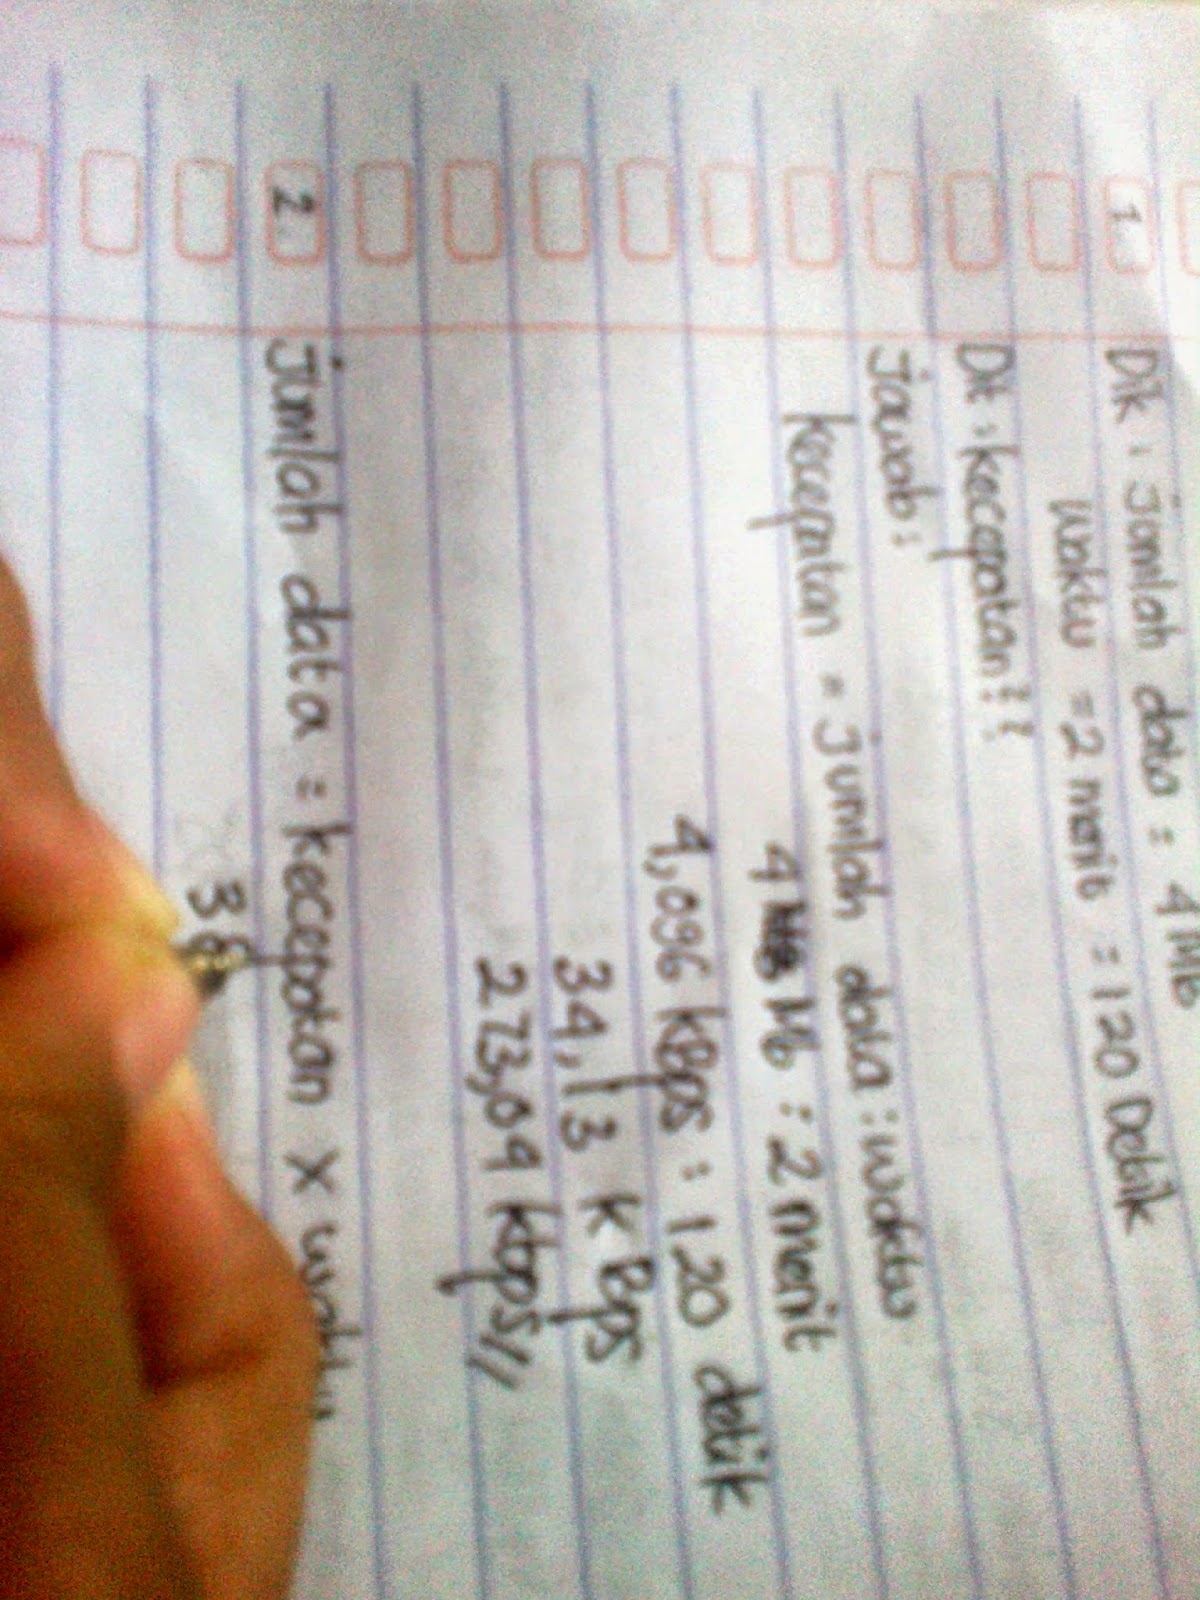 1 Dik : Jumlah data = 4 Mb
Waktu = 2 menit = 120 Detik
Dt : kecepatan??
Jawab :
kecepatan = Jumlah data : waktu
4 Mb : 2 menit
4,096 kBps : 120 detik
34,13 kBps
273,04 kbps//
2. Jumlah data = kecepatan x waktu